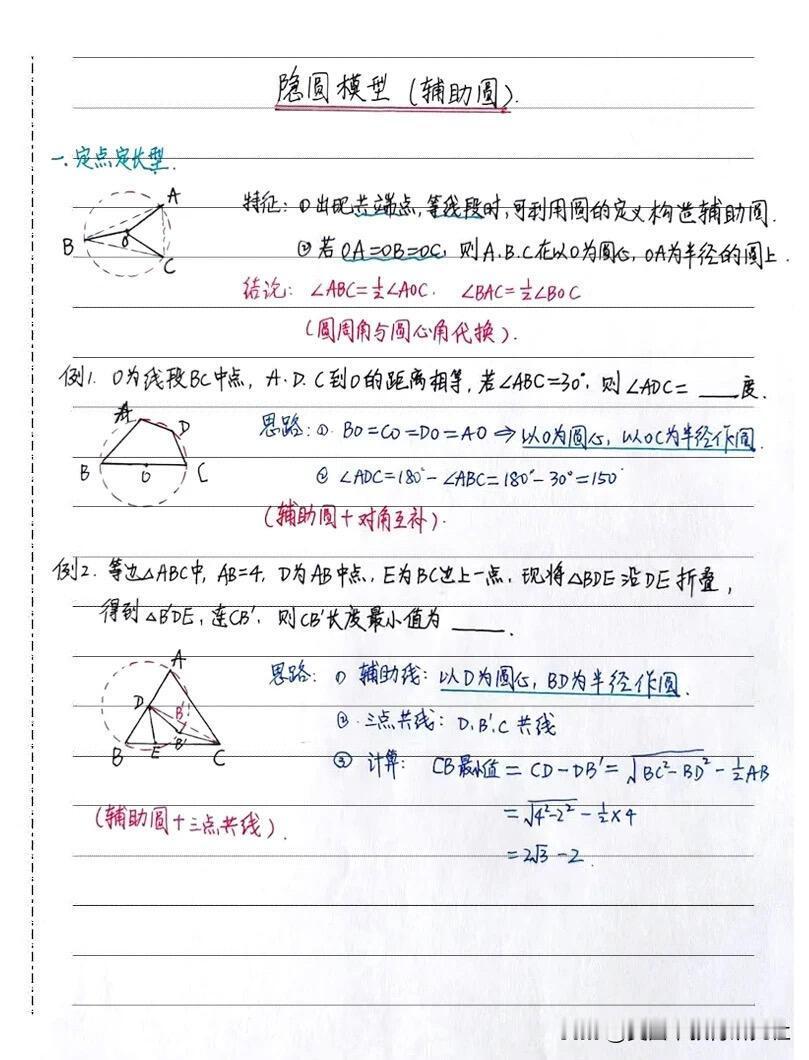 隐圆模型(辅助圆).
一.定点定长型.
特征:①出现共端点,等线段时,可利用圆的定义构造辅助圆.
②若OA=OB=OC,则A.B.C在以O为圆心,OA为半径的圆上.
A
B
O
C
结论:∠ABC=½∠AOC. ∠BAC=½∠BOC
(圆周角与圆心角代换).
例1. O为线段BC中点,A.D.C到O的距离相等,若∠ABC=30°,则∠ADC=____度.
A
D
B
O
C
思路:①.BO=CO=DO=AO⇒以O为圆心,以OC为半径作圆.
②∠ADC=180°-∠ABC=180°-30°=150°
(辅助圆+对角互补).
例2.等边△ABC中,AB=4,D为AB中点,E为BC边上一点,现将△BDE沿DE折叠,
得到△B'DE,连CB',则CB'长度最小值为____.
A
D
B'
B
E
B'
C
思路:①辅助线:以D为圆心,BD为半径作圆.
②.三点共线:D.B'.C共线
③计算: CB最小值=CD-DB'=√BC²-BD²-½AB
=√4²-2²-½×4
=2√3-2.
(辅助圆+三点共线).